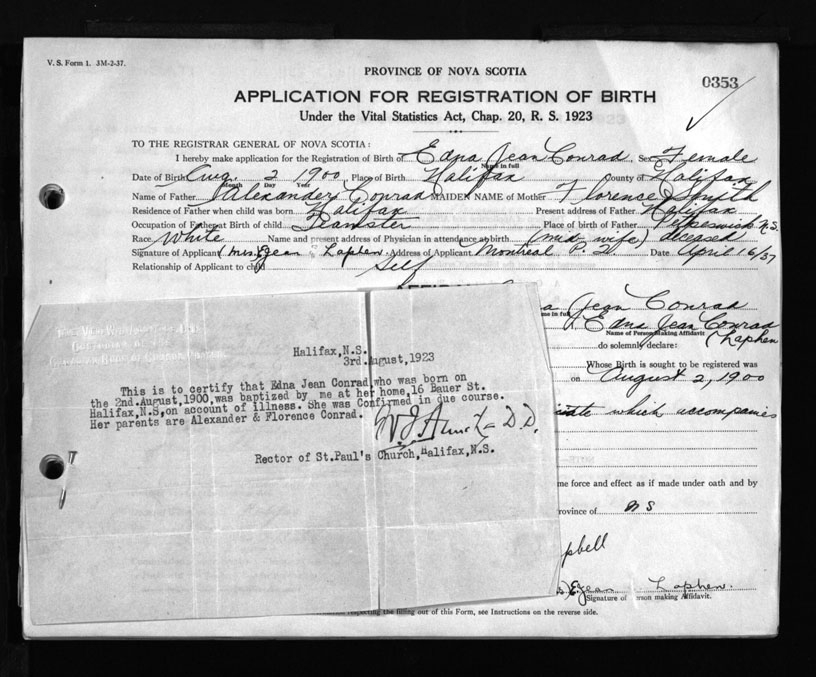 V. S. Form 1. 3M-2-37.
PROVINCE OF NOVA SCOTIA
0353
APPLICATION FOR REGISTRATION OF BIRTH
Under the Vital Statistics Act, Chap. 20, R. S. 1923
TO THE REGISTRAR GENERAL OF NOVA SCOTIA:
I hereby make application for the Registration of Birth of Edna Jean Conrad Sex Female
Name in full
Date of Birth Aug. 2 1900 Place of Birth Halifax County of Halifax
Month Day Year
Name of Father Alexander Conrad MAIDEN NAME of Mother Florence Smith
Residence of Father when child was born Halifax Present address of Father Halifax
Occupation of Father at Birth of child Teamster Place of birth of Father N.S.
Race White Name and present address of Physician in attendance at birth (mid wife) deceased
Signature of Applicant (Mrs. E Jean Laphen Address of Applicant Montreal P. Q Date April 16/37
Relationship of Applicant to child Self
Jean Conrad
me in full
Edna Jean Conrad
Name of Person Making Affidavit
(Laphen
do solemnly declare:
Whose Birth is sought to be registered was
on August 2, 1900
which accompanies
me force and effect as if made under oath and by
rovince of N S
pbell
E Jean Laphen.
Signature of person making Affidavit.
respecting the filling out of this Form, see Instructions on the reverse side.
Halifax,N.S.
3rd.August,1923
This is to certify that Edna Jean Conrad,who was born on
the 2nd.August,1900,was baptized by me at her home,16 Bauer St.
Halifax,N.S,on account of illness. She was Confirmed in due course.
Her parents are Alexander & Florence Conrad.
D.D.
Rector of St.Paul's Church,Halifax,N.S.